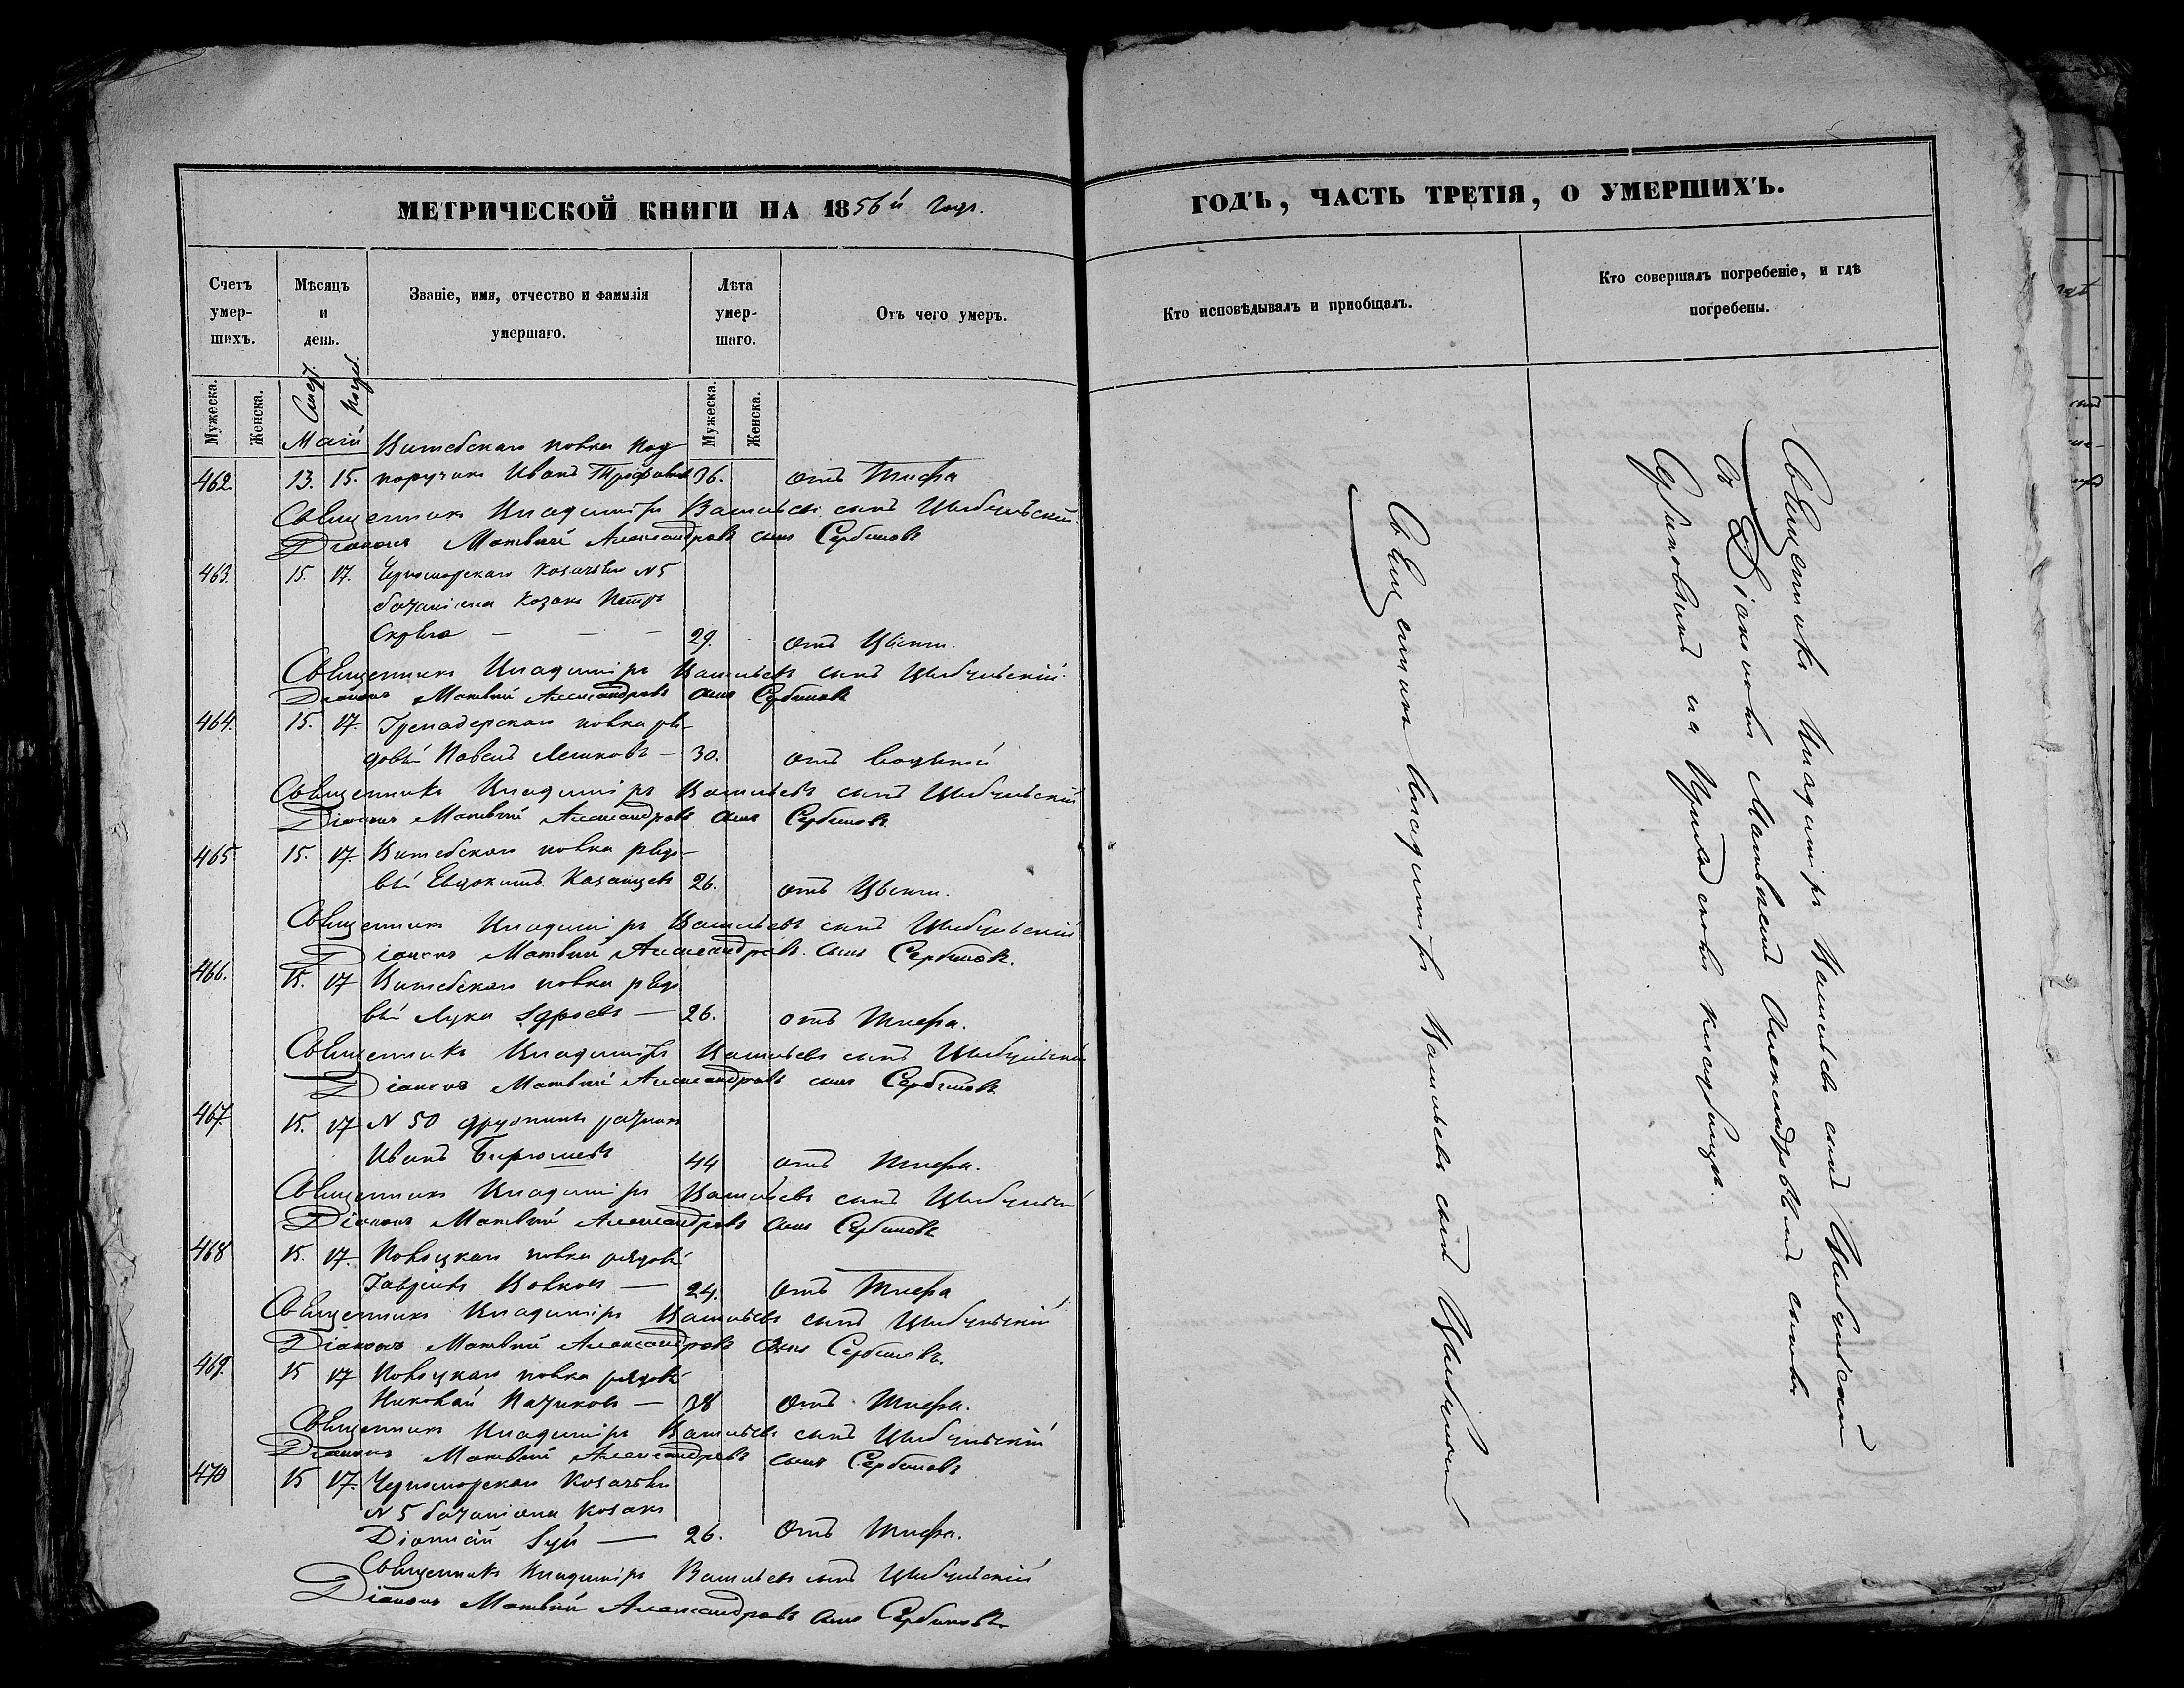 МЕТРИЧЕСКОЙ КНИГИ НА 1856й
Счетъ умер-шихъ.
Мѣсяцъ и день.
Званіе, имя, отчество и фамилія умершаго.
Лѣта умер-шаго.
Отъ чего умеръ.
Мужеска.
Женска.
Мужеска.
Женска.
Маій Витебскаго полка Под
462. 13. 15. поручикъ Иванъ 36. отъ Тифа
Священникъ Владимiръ Васильевъ сынъ
Діаконъ Матвѣй Александровъ сынъ Сербиновъ
463. 15. 17. Черноморскаго Козачьяго №5
баталіона Козакъ Петръ
29. отъ Цынги.
Священникъ Владиміръ Васильевъ сынъ
Діаконъ Матвѣй Александровъ сынъ Сербиновъ
464. 15. 17. Гренадерскаго полка ря-
довый Павелъ 30. отъ водяной
Священникъ Владиміръ Васильевъ сынъ
Діаконъ Матвѣй Александровъ сынъ Сербиновъ
465 15. 17. Витебскаго полка рядо-
вый Евдокимъ Казанцевъ 26. отъ Цынги.
Священникъ Владиміръ Васильевъ сынъ
Діаконъ Матвѣй Александровъ сынъ Сербиновъ.
466. 15. 17 Витебскаго полка рядо
вый Лука 26. отъ тифа.
Священникъ Владиміръ Васильевъ сынъ
Діаконъ Матвѣй Александровъ сынъ Сербиновъ
467. 15. 17 № 50 дружины ратникъ
Иванъ 44 отъ тифа.
Священникъ Владиміръ Васильевъ сынъ
Діаконъ Матвѣй Александровъ сынъ Сербиновъ
468 15. 17. Полоцкаго полка рядовый
Гавріилъ Волковъ 24. отъ Тифа
Священникъ Владиміръ Васильевъ сынъ
Діаконъ Матвѣй Александровъ сынъ Сербиновъ.
469. 15 17 Полоцкаго полка рядовый
Николай 38 отъ тифа.
Священникъ Владиміръ Васильевъ сынъ
Діаконъ Матвѣй Александровъ сынъ Сербиновъ
470 15 17. Черноморскаго Козачьяго
№ 5 баталіона Козакъ
26. отъ тифа.
Священникъ Владиміръ Васильевъ сынъ
Діаконъ Матвѣй Александровъ сынъ Сербиновъ
ГОДЪ, ЧАСТЬ ТРЕТІЯ, О УМЕРШИХЪ.
Кто исповѣдывалъ и приобщалъ.
Кто совершалъ погребеніе, и гдѣ
погребены.
Священникъ Владиміръ Васильевъ сынъ
Священникъ Владиміръ Васильевъ сынъ
съ Діакономъ Матвѣемъ Александровымъ сыномъ
Сербиновымъ на кладбищѣ.